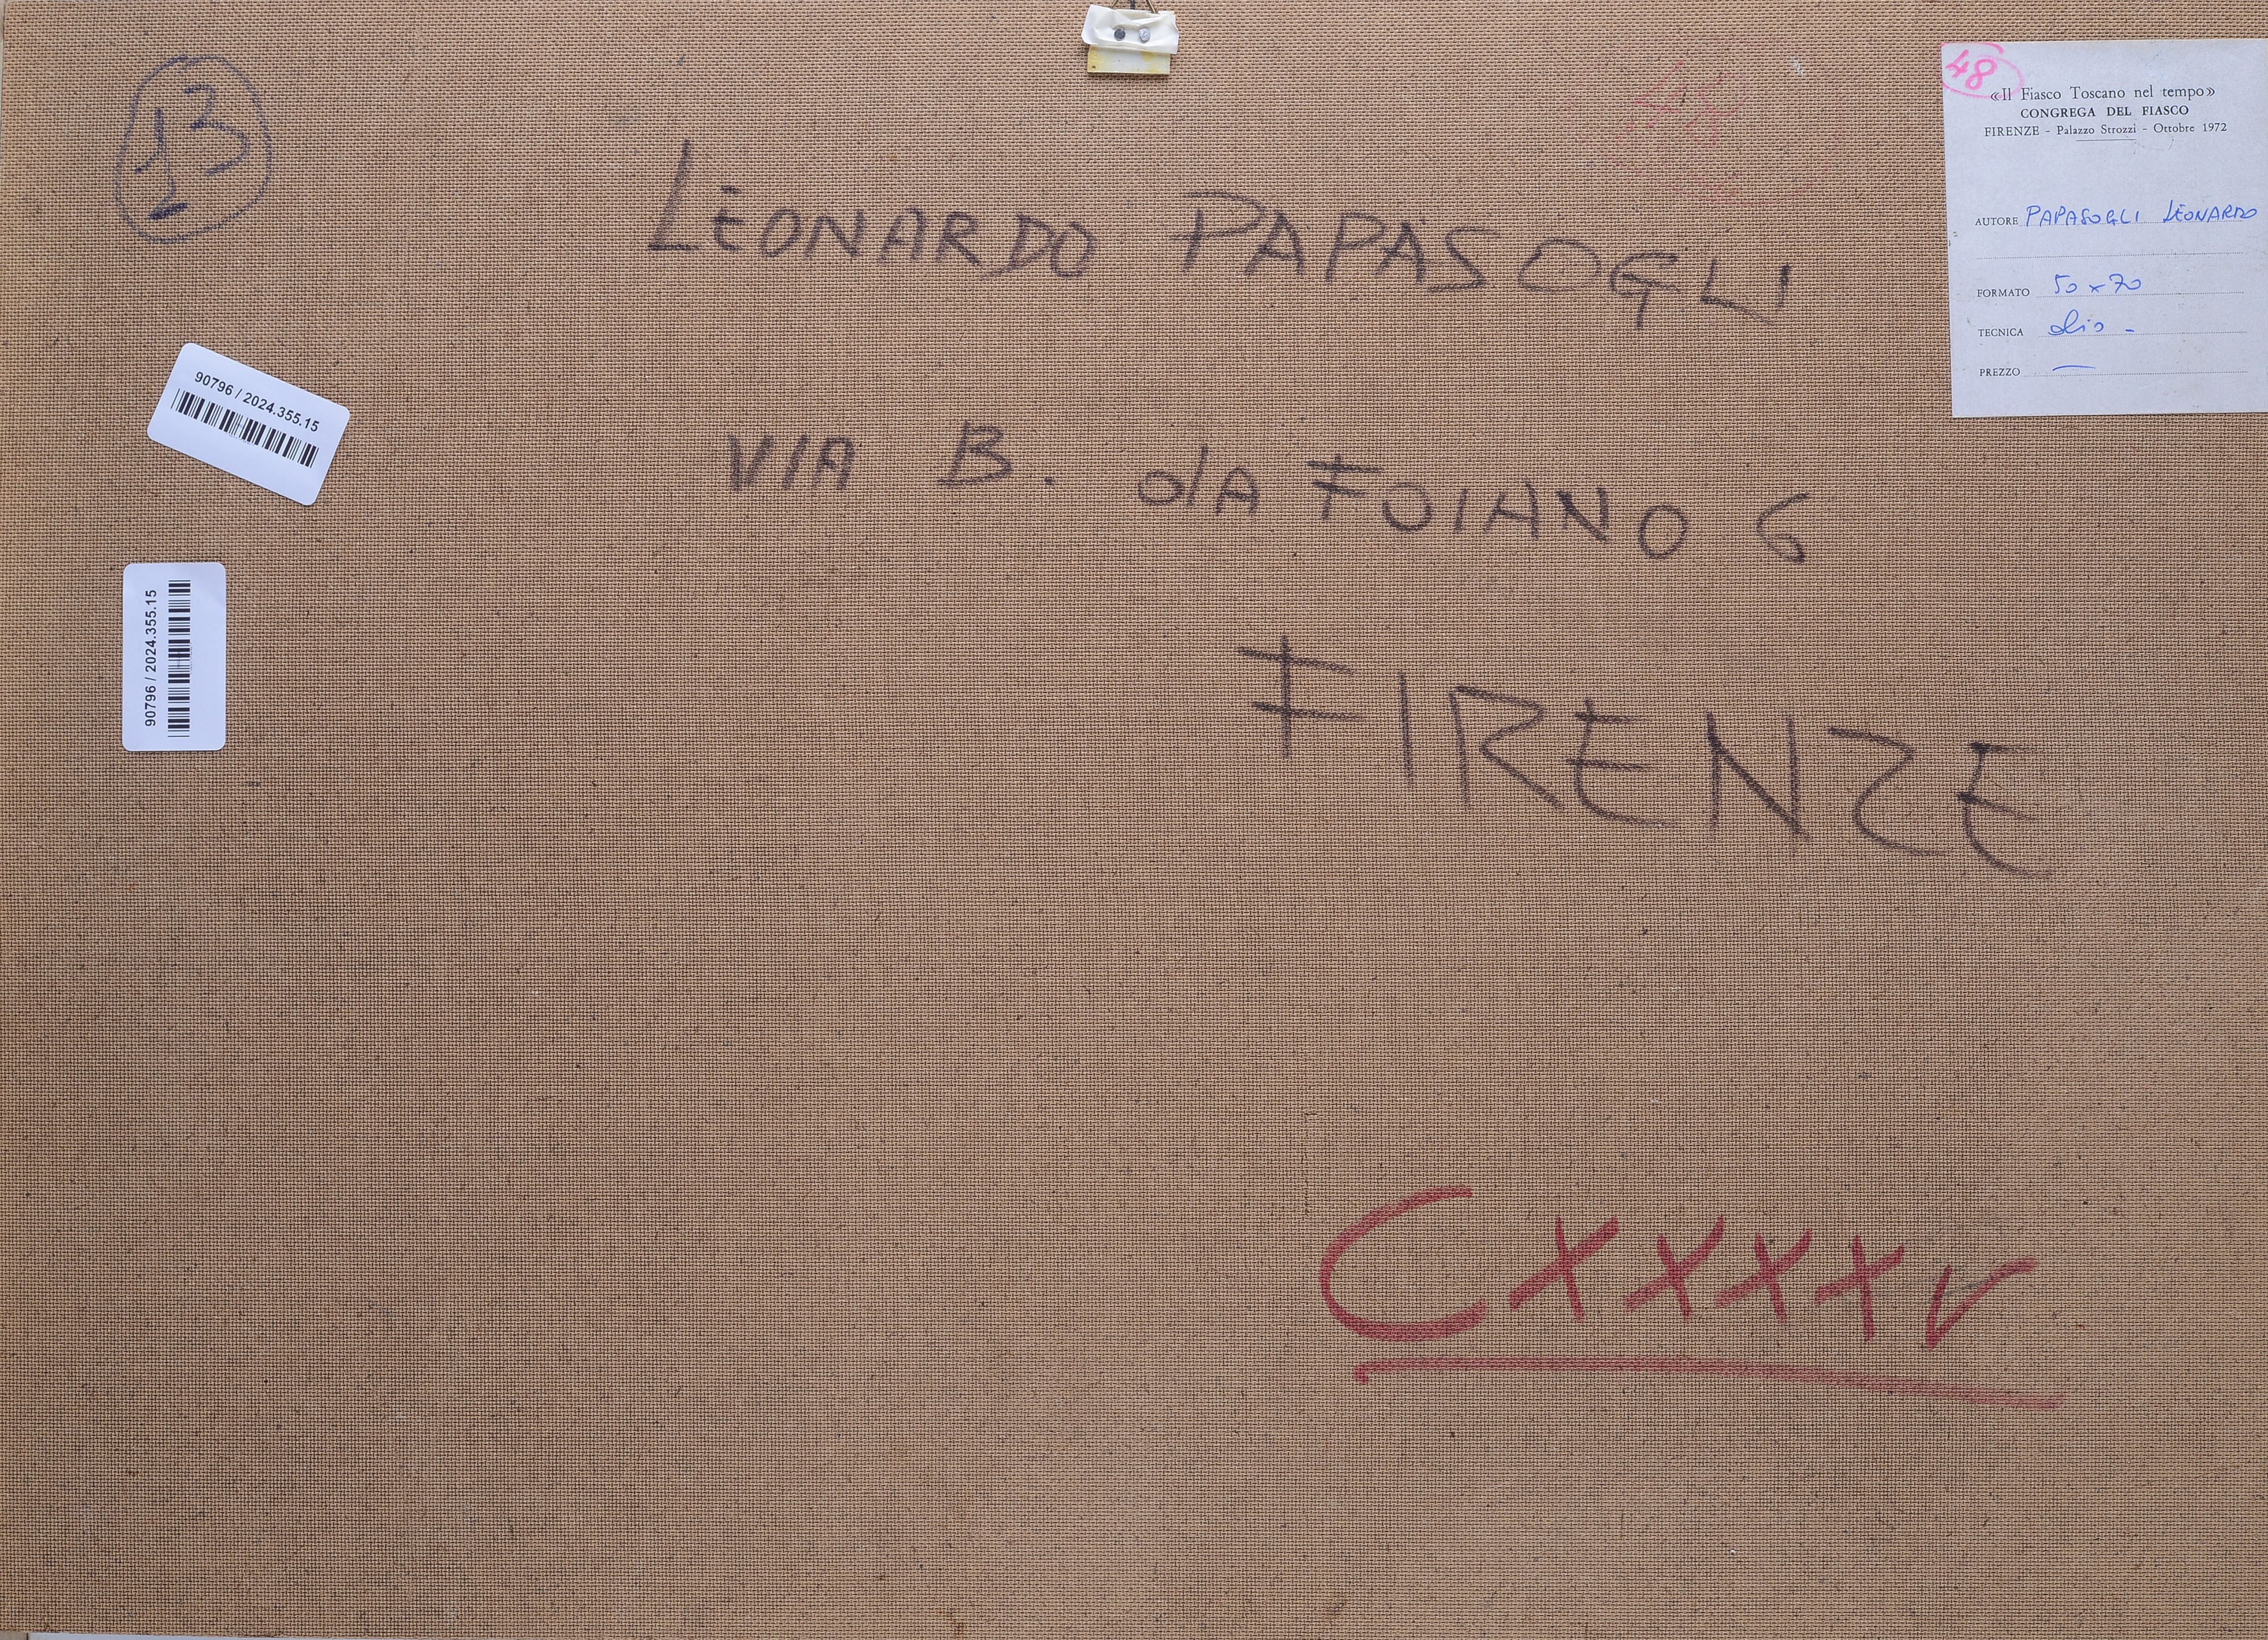 13
LEONARDO PAPASOGLI
VIA B. dA FOIANO 6
FIRENZE
CXXXXV
48
48
«Il Fiasco Toscano nel tempo»
CONGREGA DEL FIASCO
FIRENZE - Palazzo Strozzi - Ottobre 1972
AUTORE PAPASOGLI LEONARDO
FORMATO 50 x 70
TECNICA olio -
PREZZO —
90796 / 2024.355.15
90796 / 2024.355.15